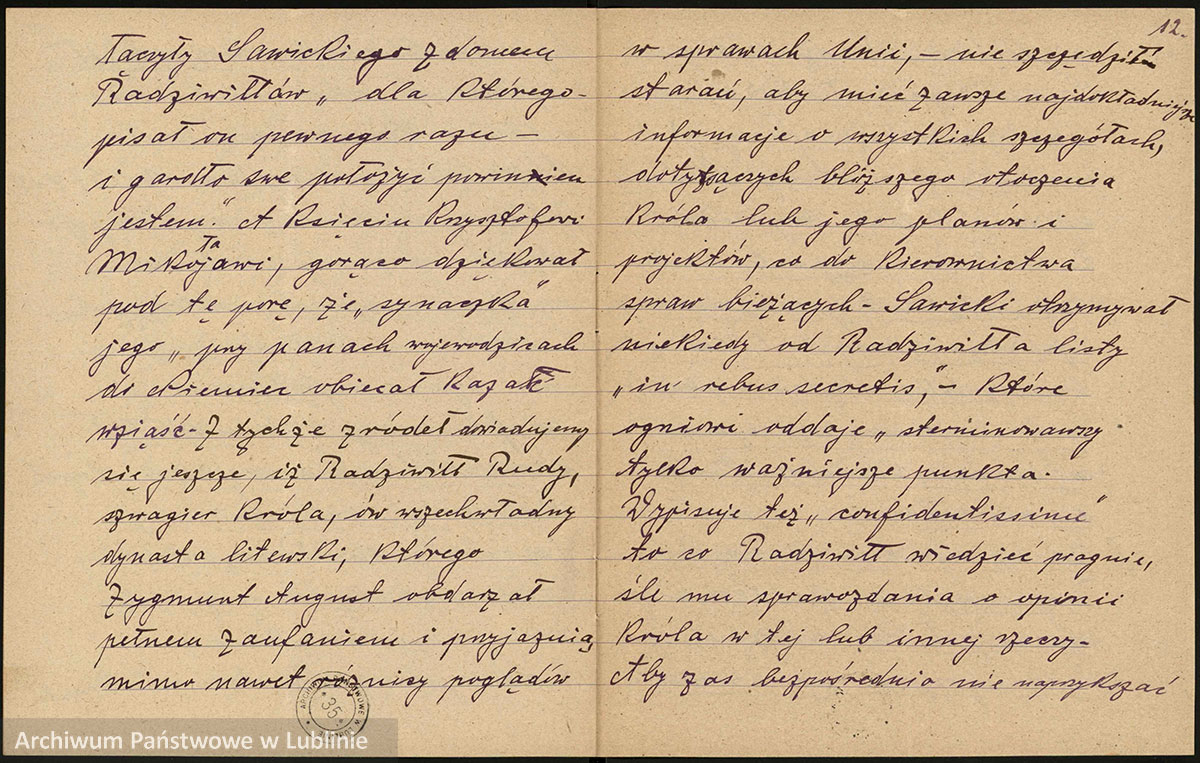 łączyły Sawickiego z domem
Radziwiłłów „ dla którego -
pisał on pewnego razu —
i gardło swe położyć powinnien
jestem." A księciu Krzysztofowi
Mikołajawi, gorąco dziękował
pod tę porę, że „synaczka"
jego „ przy panach wojewodzicach
do Niemiec obiecał kazać
wziąść - Z tychże źródeł dowiadujemy
się jeszcze, iż Radziwiłł Rudy,
szwagier Króla, ów wszechwładny
dynasta litewski, którego
Zygmunt August obdarzał
pełnem zaufaniem i przyjaźnią,
mimo nawet różnicy poglądów
12.
w sprawach Unii, — nie szczędził
starań, aby mieć zawsze najdokładniejsze
informacje o wszystkich szczegółach,
dotyczących bliższego otoczenia
Króla lub jego planów i
projektów, co do kierownictwa
spraw bieżących - Sawicki otrzymywał
niekiedy od Radziwiłła listy
„in rebus secretis", — które
ogniowi oddaje „ sterminowawszy
tylko ważniejsze punkta.
Wypisuje też „ confidentissime"
to co Radziwiłł wiedzieć pragnie,
śle mu sprawozdania o opinii
Króla w tej lub innej rzeczy -
Aby zas bezpośrednio nie naprzykszać
35
Archiwum Państwowe w Lublinie